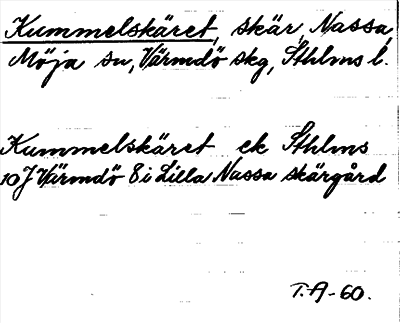 Kummelskäret, skär, Nassa,
Möja sn, Värmdö skg, Sthlms l.
Kummelskäret ek Sthlms
10J Värmdö 8i Lilla Nassa skärgård
T.A-60.